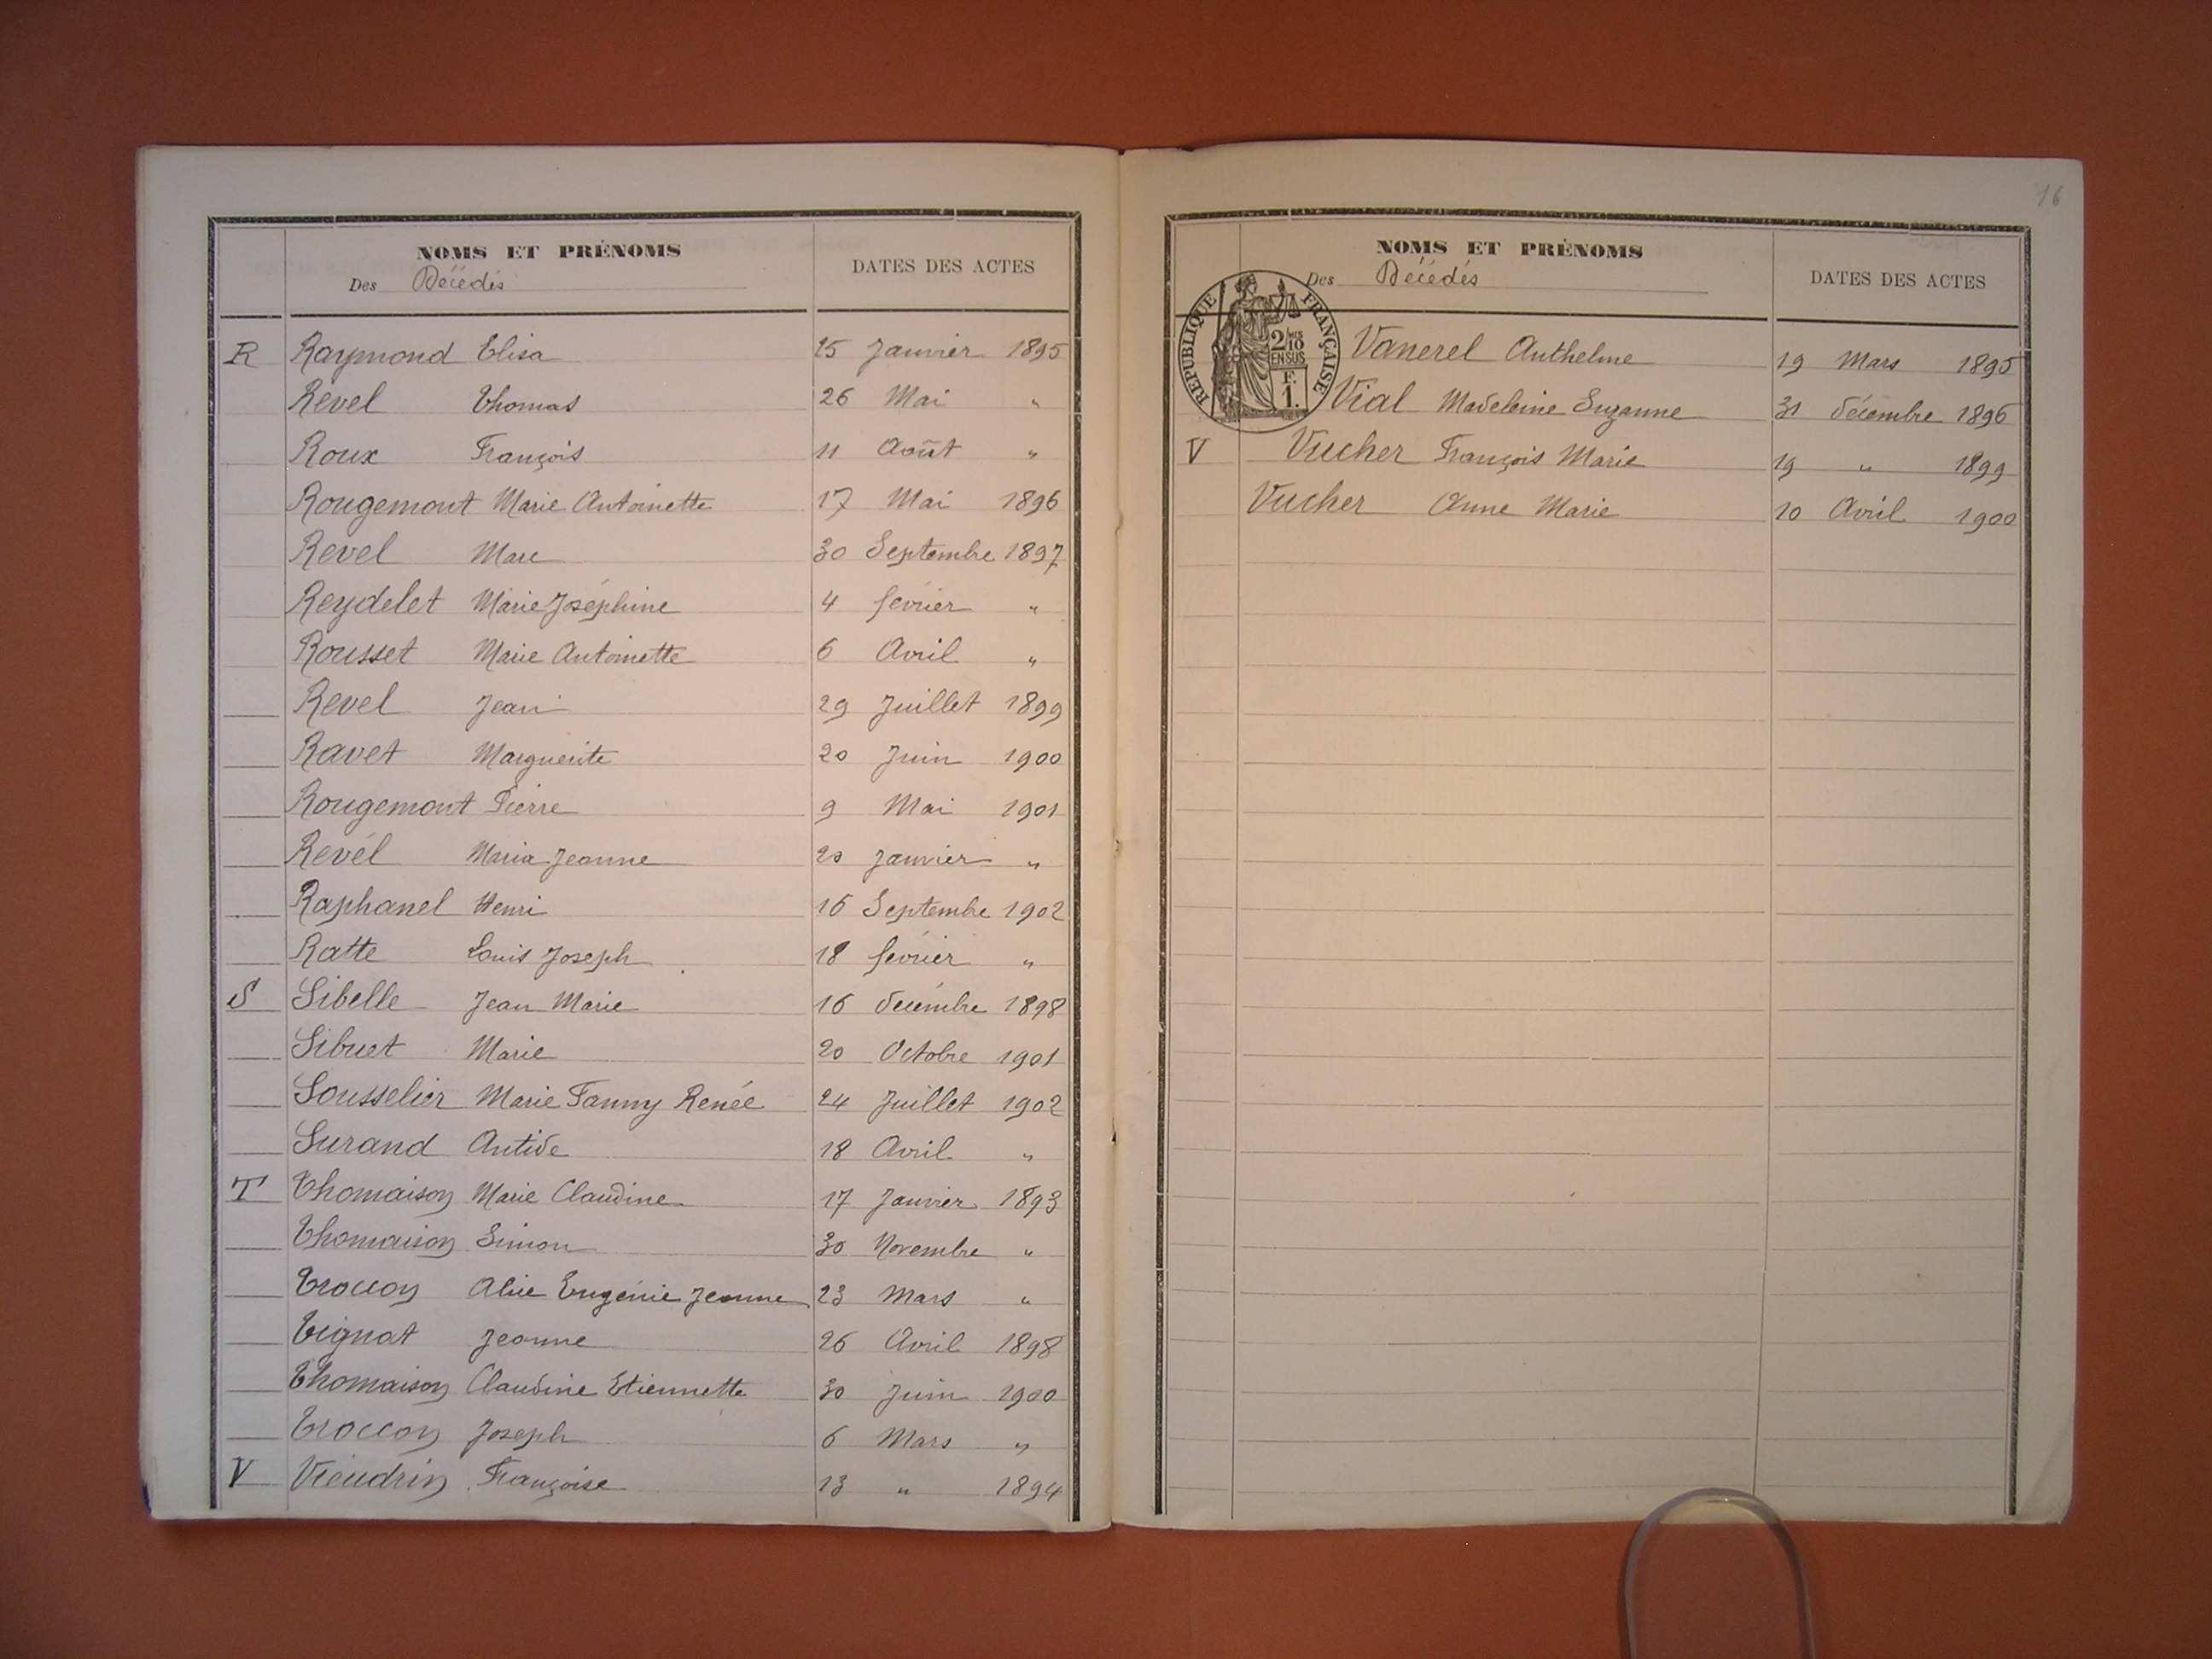 NOMS ET PRÉNOMS
Des Décédés
DATES DES ACTES
R Raymond Elisa 25 Janvier 1895
Revel Thomas 26 Mai "
Roux François 11 Août "
Rougemont Marie Antoinette 17 Mai 1896
Revel Marc 30 Septembre 1897
Reydelet Marie Joséphine 4 février "
Rousset Marie Antoinette 6 Avril "
Revel Jean 29 Juillet 1899
Ravet Marguerite 20 Juin 1900
Rougemont Pierre 9 Mai 1901
Revél Maria Jeanne 20 Janvier "
Raphanel Henri 16 Septembre 1902
Ratte Louis Joseph 18 février "
S Sibelle Jean Marie 16 décembre 1898
Sibuet Marie 20 Octobre 1901
Sousselier Marie Fanny Renée 24 Juillet 1902
Surand Antide 18 Avril "
T Thomaison Marie Claudine 17 Janvier 1893
Thomaison Simon 30 Novembre "
Troccon Alice Eugénie Jeanne 23 Mars "
Tignat Jeanne 26 Avril 1898
Thomaison Claudine Etiennette 30 Juin 1900
Troccon Joseph 6 Mars "
V Vieudrin Françoise 13 " 1894
16
NOMS ET PRÉNOMS
Des Décédés
DATES DES ACTES
RÉPUBLIQUE FRANÇAISE
2/10
EN SUS
F.
1.
Vanerel Anthelme 19 Mars 1895
Vial Madeleine Suzanne 31 décembre 1896
V Vucher François Marie 19 " 1899
Vucher Anne Marie 10 Avril 1900